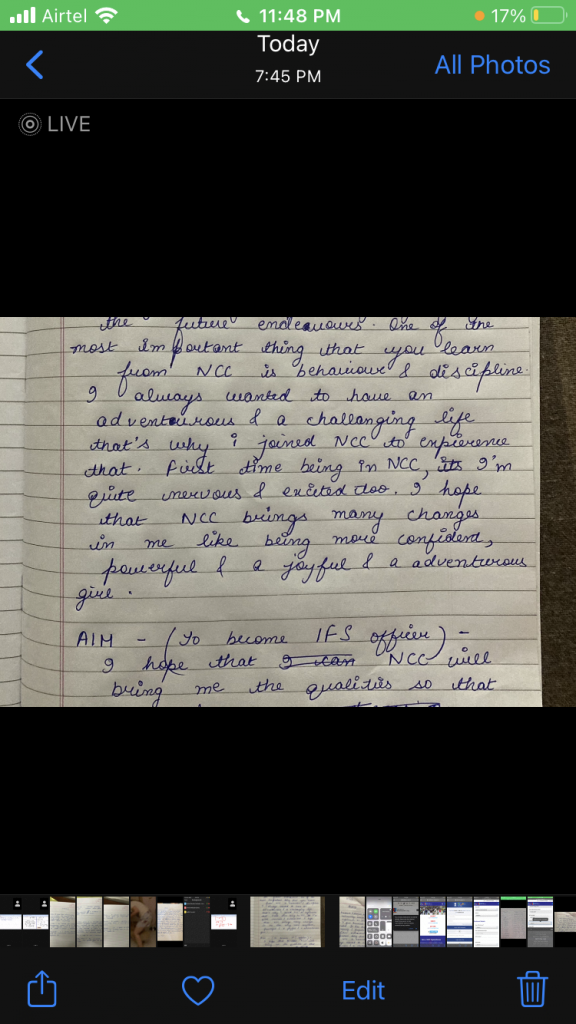 Airtel 11:48 PM 17%
Today
7:45 PM
All Photos
LIVE
the future endeavours. One of the
most important thing that you learn
from NCC is behaviour & discipline.
I always wanted to have an
adventourous & a challanging life
that's why i joined NCC to expierence
that. First time being in NCC, its I'm
quite nervous & excited too. I hope
that NCC brings many changes
in me like being more confident,
powerful & a joyful & a adventurous
girl.
AIM - (To become IFS officer) -
I hope that I can NCC will
bring me the qualities so that
Edit